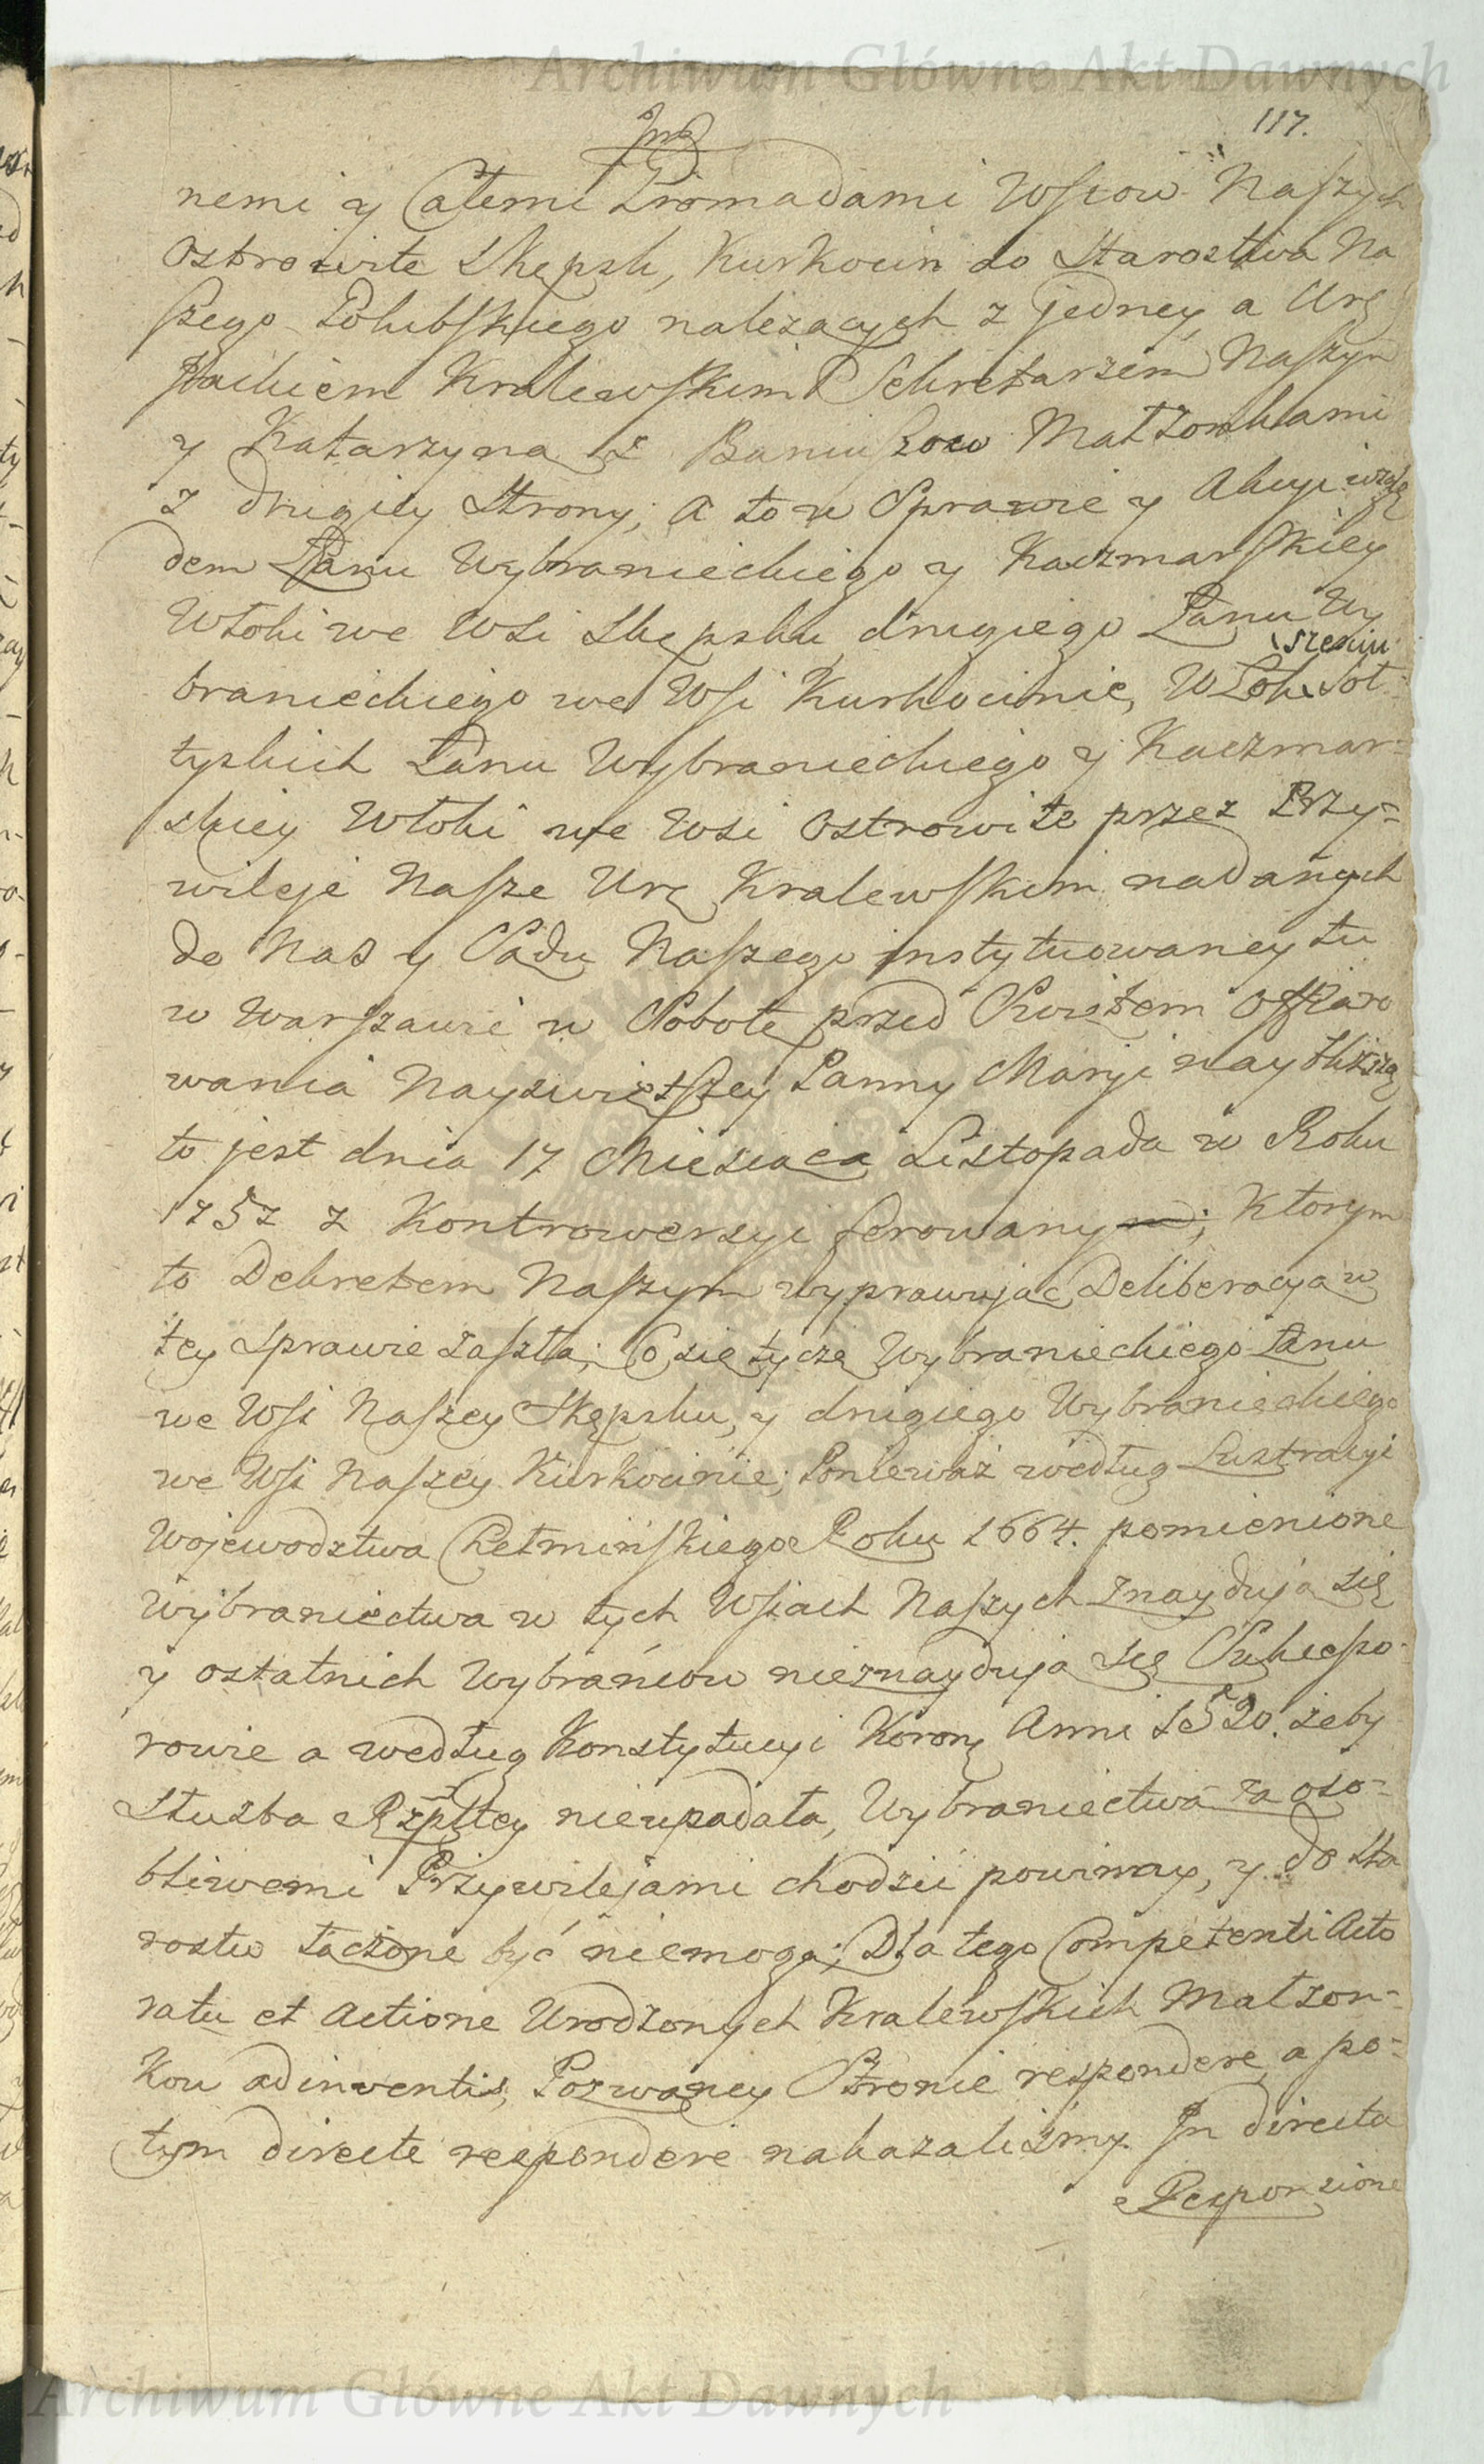 Archiwum Główne Akt Dawnych
117.
nemi y Całemi Gromadami Wsiow Naszych
Ostrowite Skępsk, Kurkocin do Starostwa Na
szego Golubskiego nalezących z jedney a Urę
Kralewskim Sekretarzem Naszym
y Katarzyną z Małzonkami
z drugiey Strony; a to w Sprawie y Akcyi wzglę
dem Łanu Wybranieckiego y Kaczmarskiey
Włoki we Wsi Skępsku drugiego Łanu Wy
branieckiego we Wsi Kurkocinie, Włok Soł
tyskich Łanu Wybranieckiego y Kaczmar=
skiey Włoki we Wsi Ostrowite przez Przy=
wileje Nasze Urę Kralewskim nadanych
do Nas y Sądu Naszego instytuowaney tu
w Warszawie w Sobotę przed Swiętem Offiaro
wania Nayswiętszey Panny Maryi naybliższą
to jest dnia 17 Miesiąca Listopada w Roku
1757 z Kontrowersyi ferowany; Ktorym
to Dekretem Naszym wyprawując Deliberacyą w
tey sprawie zaszłą; Co się tycze Wybranieckiego Łanu
we Wsi Naszey Skępsku, y drugiego Wybranieckiego
we Wsi Naszey Kurkocinie; Ponieważ według Lustracyi
Wojewodztwa Chełminskiego Roku 1664. pomienione
Wybraniectwa w tych Wsiach Naszych znaydują się
y ostatnich Wybrańcow nieznaydują się Sukcesso-
rowie a według Konstytucyi Korony Anni 1520. żeby
Służba Rzpltey nieupadała, Wybraniectwa za oso=
bliwemi Przywilejami chodzić powinny, y do Sta
rostw łączone być niemogą; Dla tego Competenti Acto
ratu et Actione Urodzonych Kralewskich Małzon=
kow adinventis, Pozwaney Stronie respondere, a po=
tym directe respondere nakazaliśmy. In directa
Responsione
Archiwum Główne Akt Dawnych